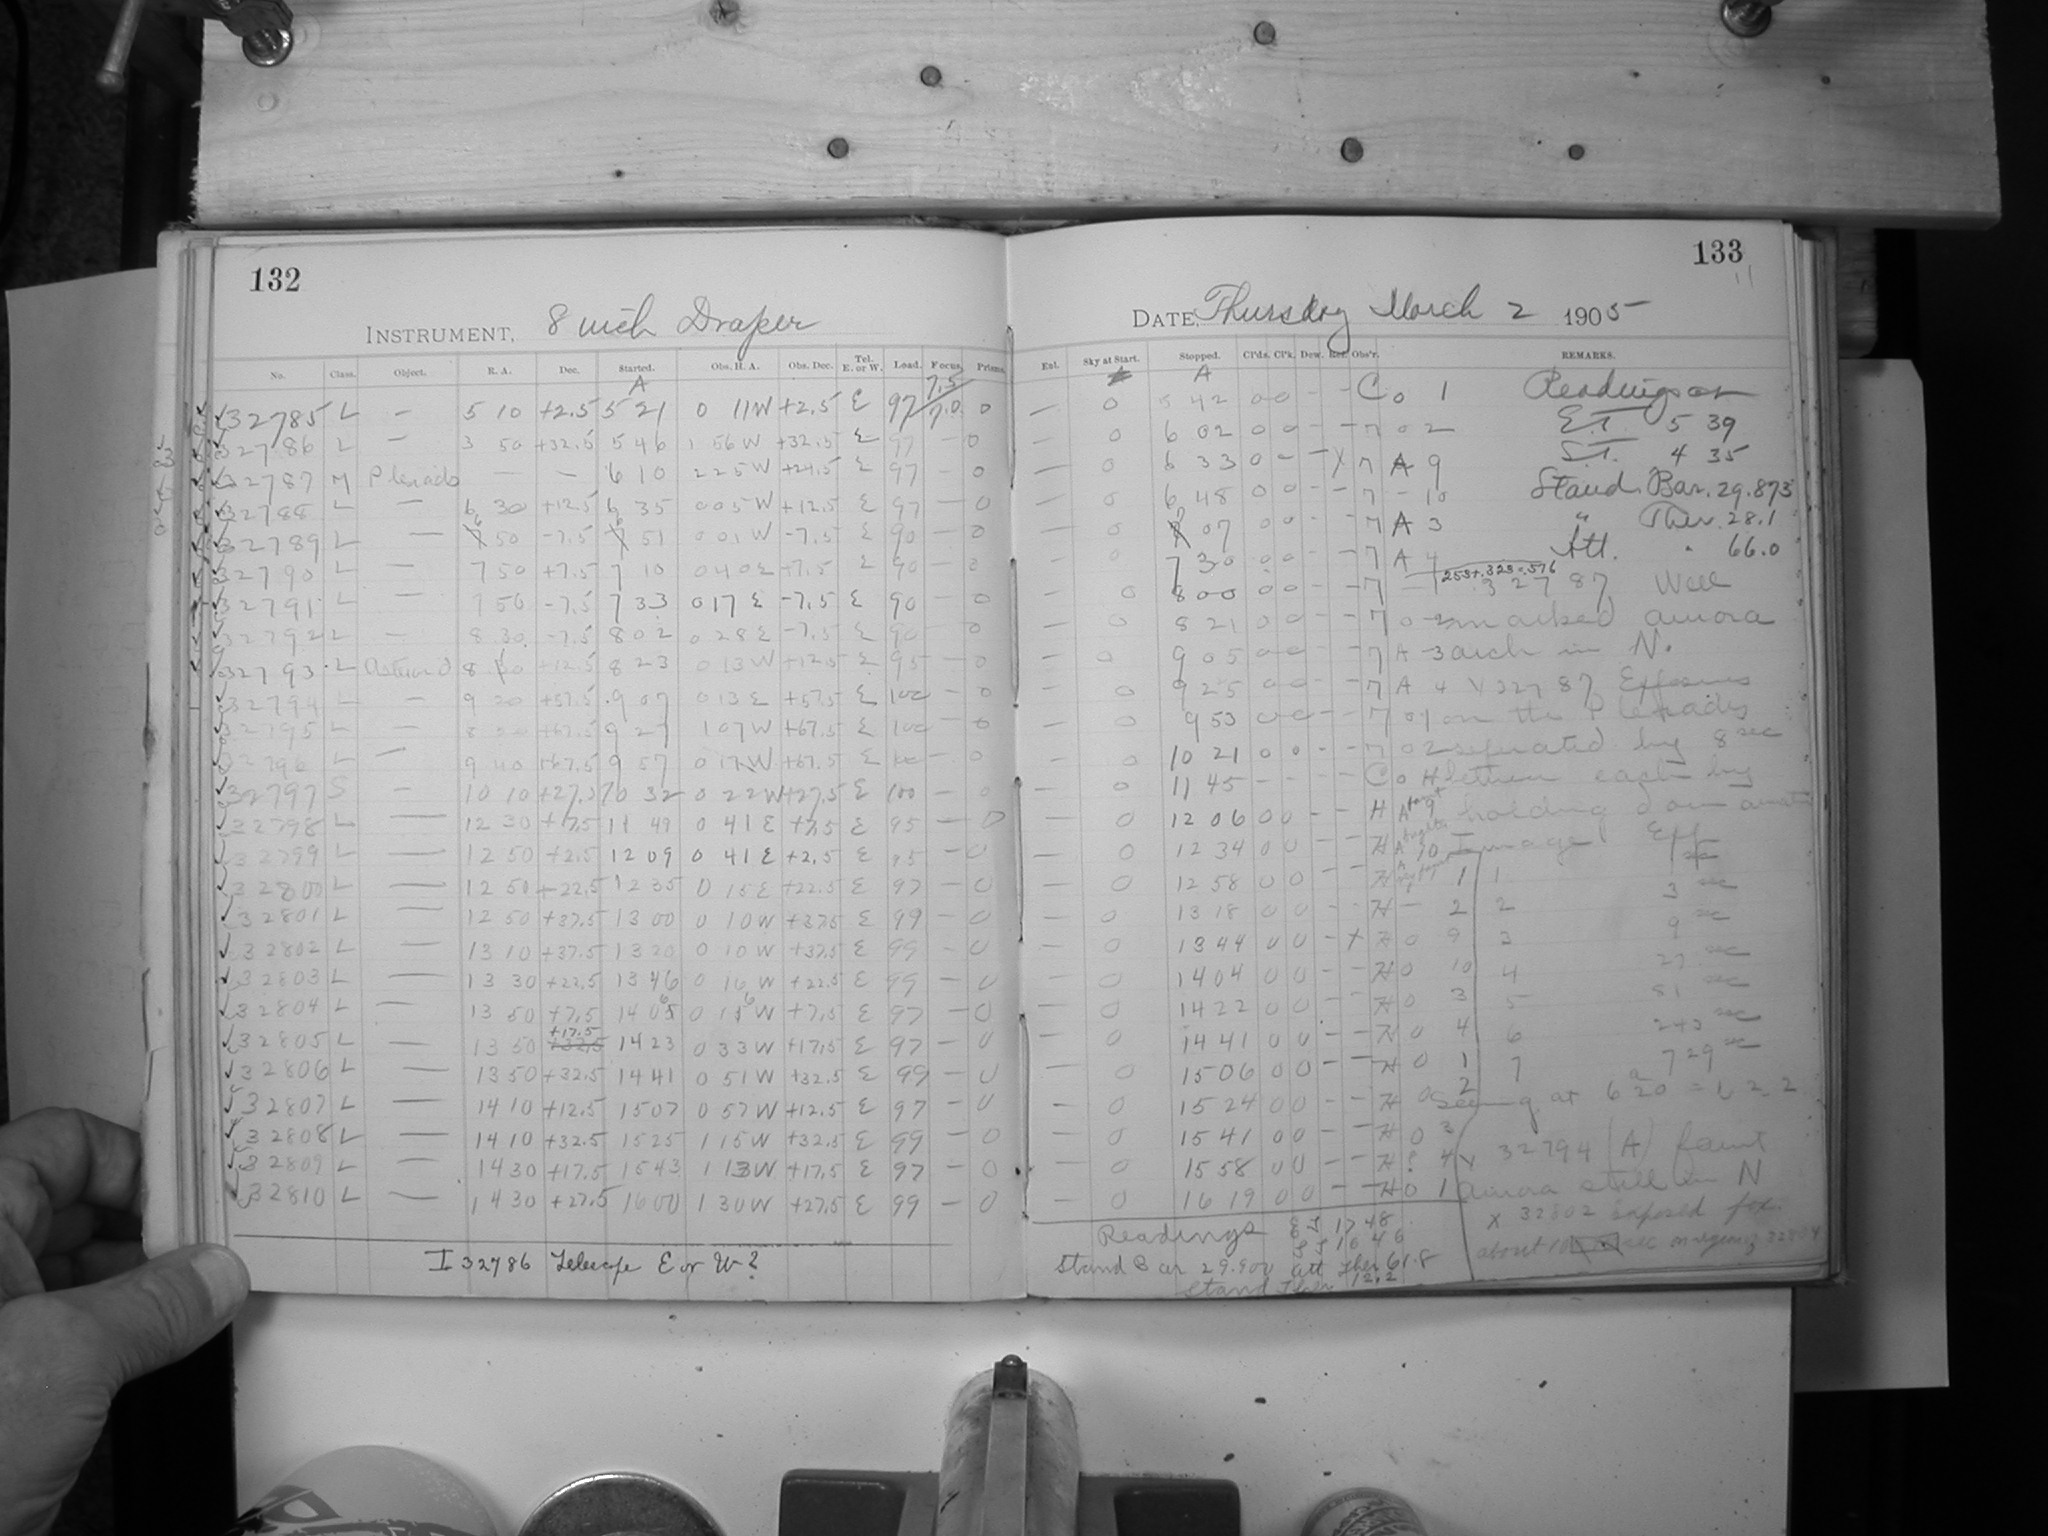 132
INSTRUMENT, 8 inch Draper
No. Class. Object. R. A. Dec. Started. Obs. H. A. Obs. Dec. Tel. E. or W. Load. Focus. Prisms.
A 7.5
32785 L — 5 10 +2.5 5 21 0 11 W +2.5 E 97 7.0 0
32786 L — 3 50 +32.5 5 46 1 56 W +32.5 E 97 — 0
32787 M Pleiades — — 6 10 2 25 W +24.5 E 97 — 0
32788 L — 6 30 +12.5 6 35 0 05 W +12.5 E 97 — 0
32789 L — 6 50 -7.5 6 51 0 01 W -7.5 E 90 — 0
32790 L — 7 50 +7.5 7 10 0 40 E +7.5 E 90 — 0
32791 L — 7 50 -7.5 7 33 0 17 E -7.5 E 90 — 0
32792 L — 8 30 -7.5 8 02 0 28 E -7.5 E 90 — 0
32793 L Asteroid 8 10 +12.5 8 23 0 13 W +12.5 E 95 — 0
32794 L — 9 20 +57.5 9 07 0 13 E +57.5 E 100 — 0
32795 L — 8 20 +67.5 9 27 1 07 W +67.5 E 100 — 0
32796 L — 9 40 +67.5 9 57 0 17 W +67.5 E 100 — 0
32797 S — 10 10 +27.5 10 32 0 22 W +27.5 E 100 — 0
32798 L — 12 30 +7.5 11 49 0 41 E +7.5 E 95 — 0
32799 L — 12 50 +2.5 12 09 0 41 E +2.5 E 95 — 0
32800 L — 12 50 +22.5 12 35 0 15 E +22.5 E 97 — 0
32801 L — 12 50 +37.5 13 00 0 10 W +37.5 E 99 — 0
32802 L — 13 10 +37.5 13 20 0 10 W +37.5 E 99 — 0
32803 L — 13 30 +22.5 13 46 0 16 W +22.5 E 99 — 0
32804 L — 13 50 +7.5 14 06 0 16 W +7.5 E 97 — 0
32805 L — 13 50 +17.5 14 23 0 33 W +17.5 E 97 — 0
32806 L — 13 50 +32.5 14 41 0 51 W +32.5 E 99 — 0
32807 L — 14 10 +12.5 15 07 0 57 W +12.5 E 97 — 0
32808 L — 14 10 +32.5 15 25 1 15 W +32.5 E 99 — 0
32809 L — 14 30 +17.5 15 43 1 13 W +17.5 E 97 — 0
32810 L — 14 30 +27.5 16 00 1 30 W +27.5 E 99 — 0
I 32786 Telescope E or W?
133
DATE, Thursday March 2 1905
Ent. Sky at Start. Stopped. Cl'ds. Cl'k. Dew. Ref. Obs'r. REMARKS.
A
— 0 5 42 0 0 - - C 0 1 Readings at
— 0 6 02 0 0 - - M 0 2 E.T. 5 39
— 0 6 33 0 - - X M A 9 S.T. 4 35
— 0 6 48 0 0 - - M - 10 Stand. Bar. 29.873
0 7 07 0 0 - - M A 3 " Ther. 28.1
0 7 30 0 0 - - M A 4 Att. " 66.0
253+.323=.576
0 8 00 0 0 - - M - 1 32787 Well
0 8 21 0 0 - - M 0 2 marked aurora
0 9 05 0 0 - - M A 3 arch in N.
0 9 25 0 0 - - M A 4 X 32787 Exposures
0 9 53 0 0 - - M 0 1 on the Pleiades
0 10 21 0 0 - - M 0 2 separated by 8 sec
0 11 45 - - - - C 0 H between each by
0 12 06 0 0 - - H A 9 holding down
— 0 12 34 0 0 - - H A 10 Image Exp
— 0 12 58 0 0 - - H 1 1 1 sec
— 0 13 18 0 0 - - H - 2 2 3 sec
— 0 13 44 0 0 - X H 0 9 3 9 sec
— 0 14 04 0 0 - - H 0 10 4 27 sec
— 0 14 22 0 0 - - H 0 3 5 81 sec
— 0 14 41 0 0 - - H 0 4 6 243 sec
— 0 15 06 0 0 - - H 0 1 7 729 sec
— 0 15 24 0 0 - - H 0 2 Seeing at 6 20 = 1, 2, 2
— 0 15 41 0 0 - - H 0 3
— 0 15 58 0 0 - - H 4 X 32794 (A) faint
— 0 16 19 0 0 - - H 0 1 aurora still in N
X 32802 exposed for
about 10 sec on region 32804
Readings E T 17 48
S T 16 46
Stand Bar 29.900 Att Ther 61.8
Stand Ther 12.2